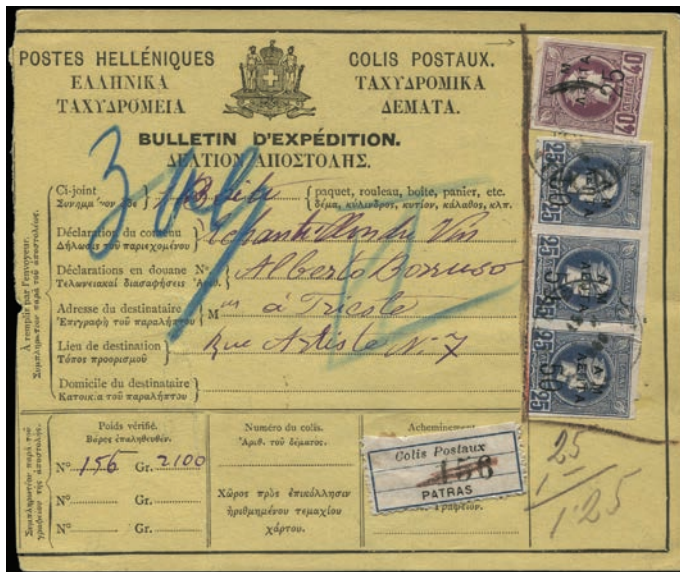 POSTES HELLÉNIQUES
ΕΛΛΗΝΙΚΑ
ΤΑΧΥΔΡΟΜΕΙΑ
COLIS POSTAUX.
ΤΑΧΥΔΡΟΜΙΚΑ
ΔΕΜΑΤΑ.
BULLETIN D'EXPÉDITION.
ΔΕΛΤΙΟΝ ΑΠΟΣΤΟΛΗΣ.
À remplir par l'envoyeur.
Συμπληρωτέον παρὰ τοῦ ἀποστολέως.
Ci-joint
paquet, rouleau, boîte, panier, etc.
δέμα, κύλινδρος, κυτίον, κάλαθος, κλπ.
Déclaration du contenu
Δήλωσις τοῦ περιεχομένου
Echantillon du Vin
Déclarations en douane No
Τελωνειακαὶ διασαφήσεις Ἀριθ.
Alberto Borruso
Adresse du destinataire
Ἐπιγραφὴ τοῦ παραλήπτου
M
à Trieste
Lieu de destination
Τόπος προορισμοῦ
Rue Artiste No 7
Domicile du destinataire
Κατοικία τοῦ παραλήπτου
Poids vérifié.
Βάρος ἐπαληθευθέν.
No 156 Gr. 2100
No Gr.
No Gr.
Numéro du colis.
Ἀριθ. τοῦ δέματος.
Χῶρος πρὸς ἐπικόλλησιν
ἠριθμημένου τεμαχίου
χάρτου.
Acheminement
Colis Postaux
156
PATRAS
Γραφεῖον.
40 ΛΕΠΤΑ 40
Α Μ
ΛΕΠΤΑ
25
25 25
Α Μ
ΛΕΠΤΑ
50
25 25
Α Μ
ΛΕΠΤΑ
50
25 25
Α Μ
ΛΕΠΤΑ
50
25
1
1.25